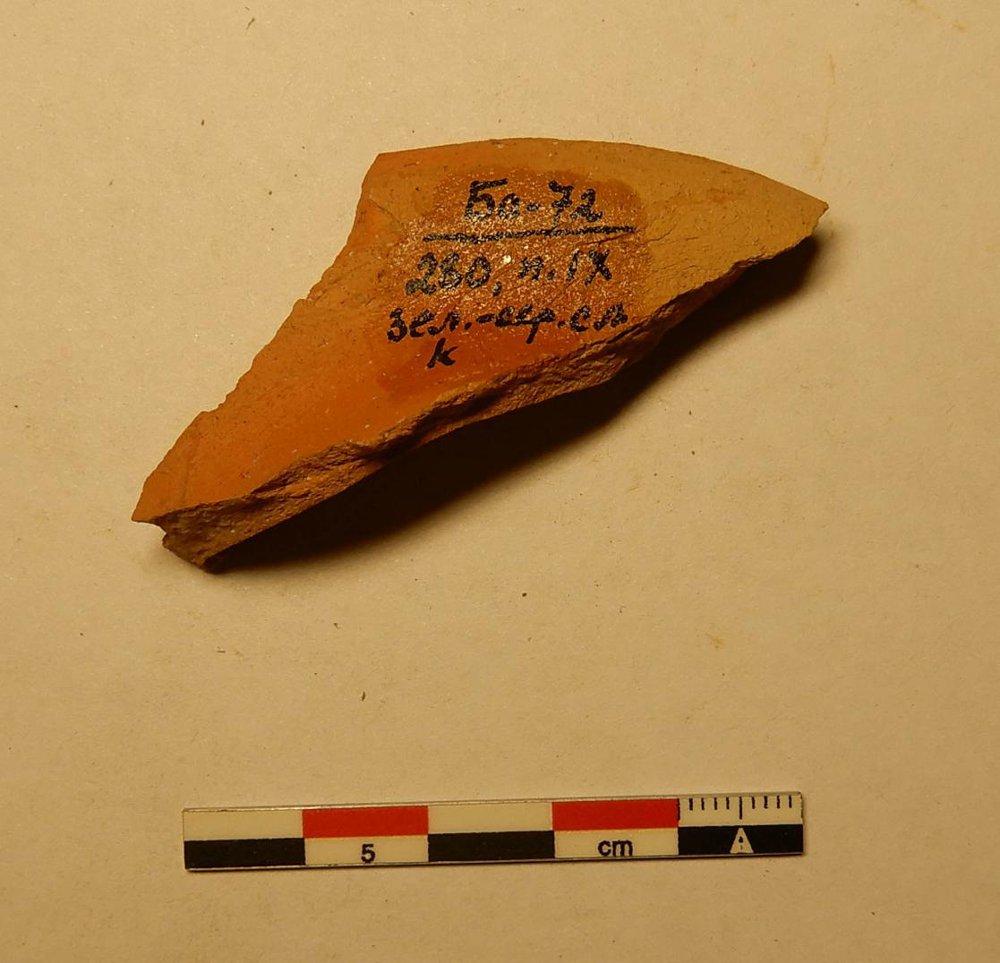 Бо-72
280, п. IX
зел.-сер. сл
к
5 cm
A